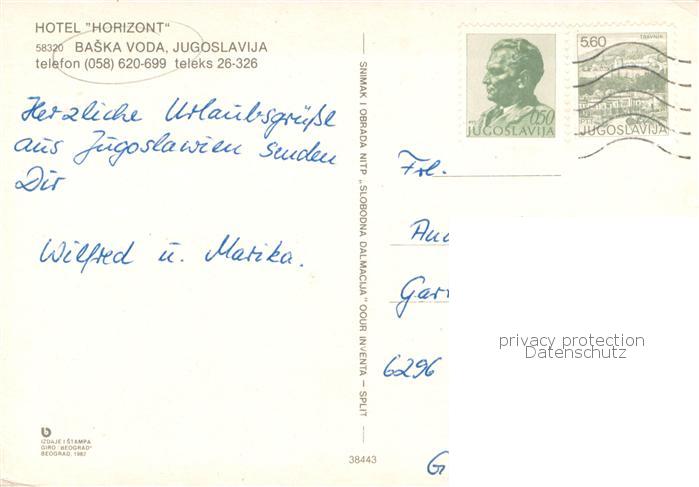 HOTEL "HORIZONT"
58320 BAŠKA VODA, JUGOSLAVIJA
telefon (058) 620-699 teleks 26-326
Herzliche Urlaubsgrüße
aus Jugoslawien senden
Dir
Wilfred u. Marika.
IZDAJE I ŠTAMPA
GIRO "BEOGRAD"
BEOGRAD, 1982
SNIMAK I OBRADA NITP „SLOBODNA DALMACIJA" OOUR INVENTA — SPLIT
38443
0,50
JUGOSLAVIJA
TRAVNIK
5.60
JUGOSLAVIJA
Frl.
6296
privacy protection
Datenschutz